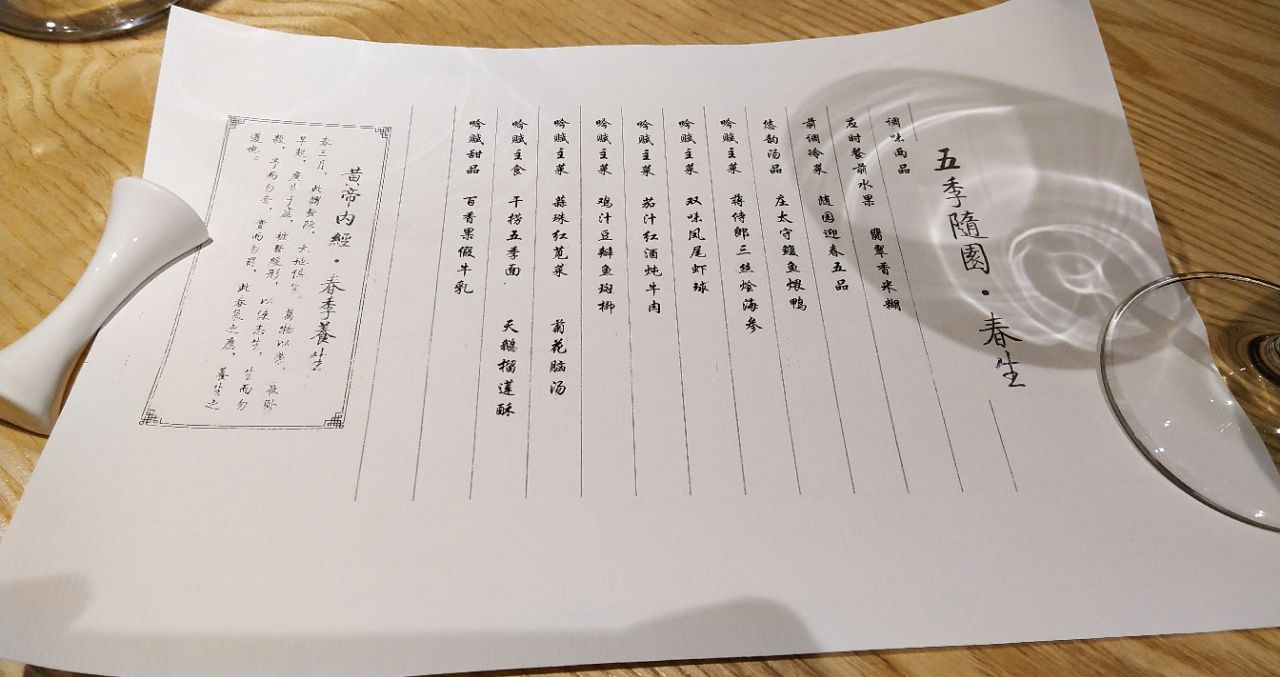 五季隨園·春生
调味两品
应时餐前水果 翡翠香米糊
前调冷菜 随园迎春五品
悠韵汤品 庄太守鳆鱼煨鸭
吟赋主菜 蒋侍郎三丝烩海参
吟赋主菜 双味凤尾虾球
吟赋主菜 茄汁红酒炖牛肉
吟赋主菜 鸡汁豆瓣鱼
吟赋主菜 蒜珠红苋菜 菊花脑汤
吟赋主食 干捞五季面 天鹅榴蓮酥
吟赋甜品 百香果假牛乳
黄帝内經·春季養生
春三月，此謂發陳，天地俱生，萬物以榮，夜卧
早起，廣步于庭，被髮緩形，以使志生，生而勿
殺，予而勿奪，賞而勿罰，此春氣之應，養生之
道也。